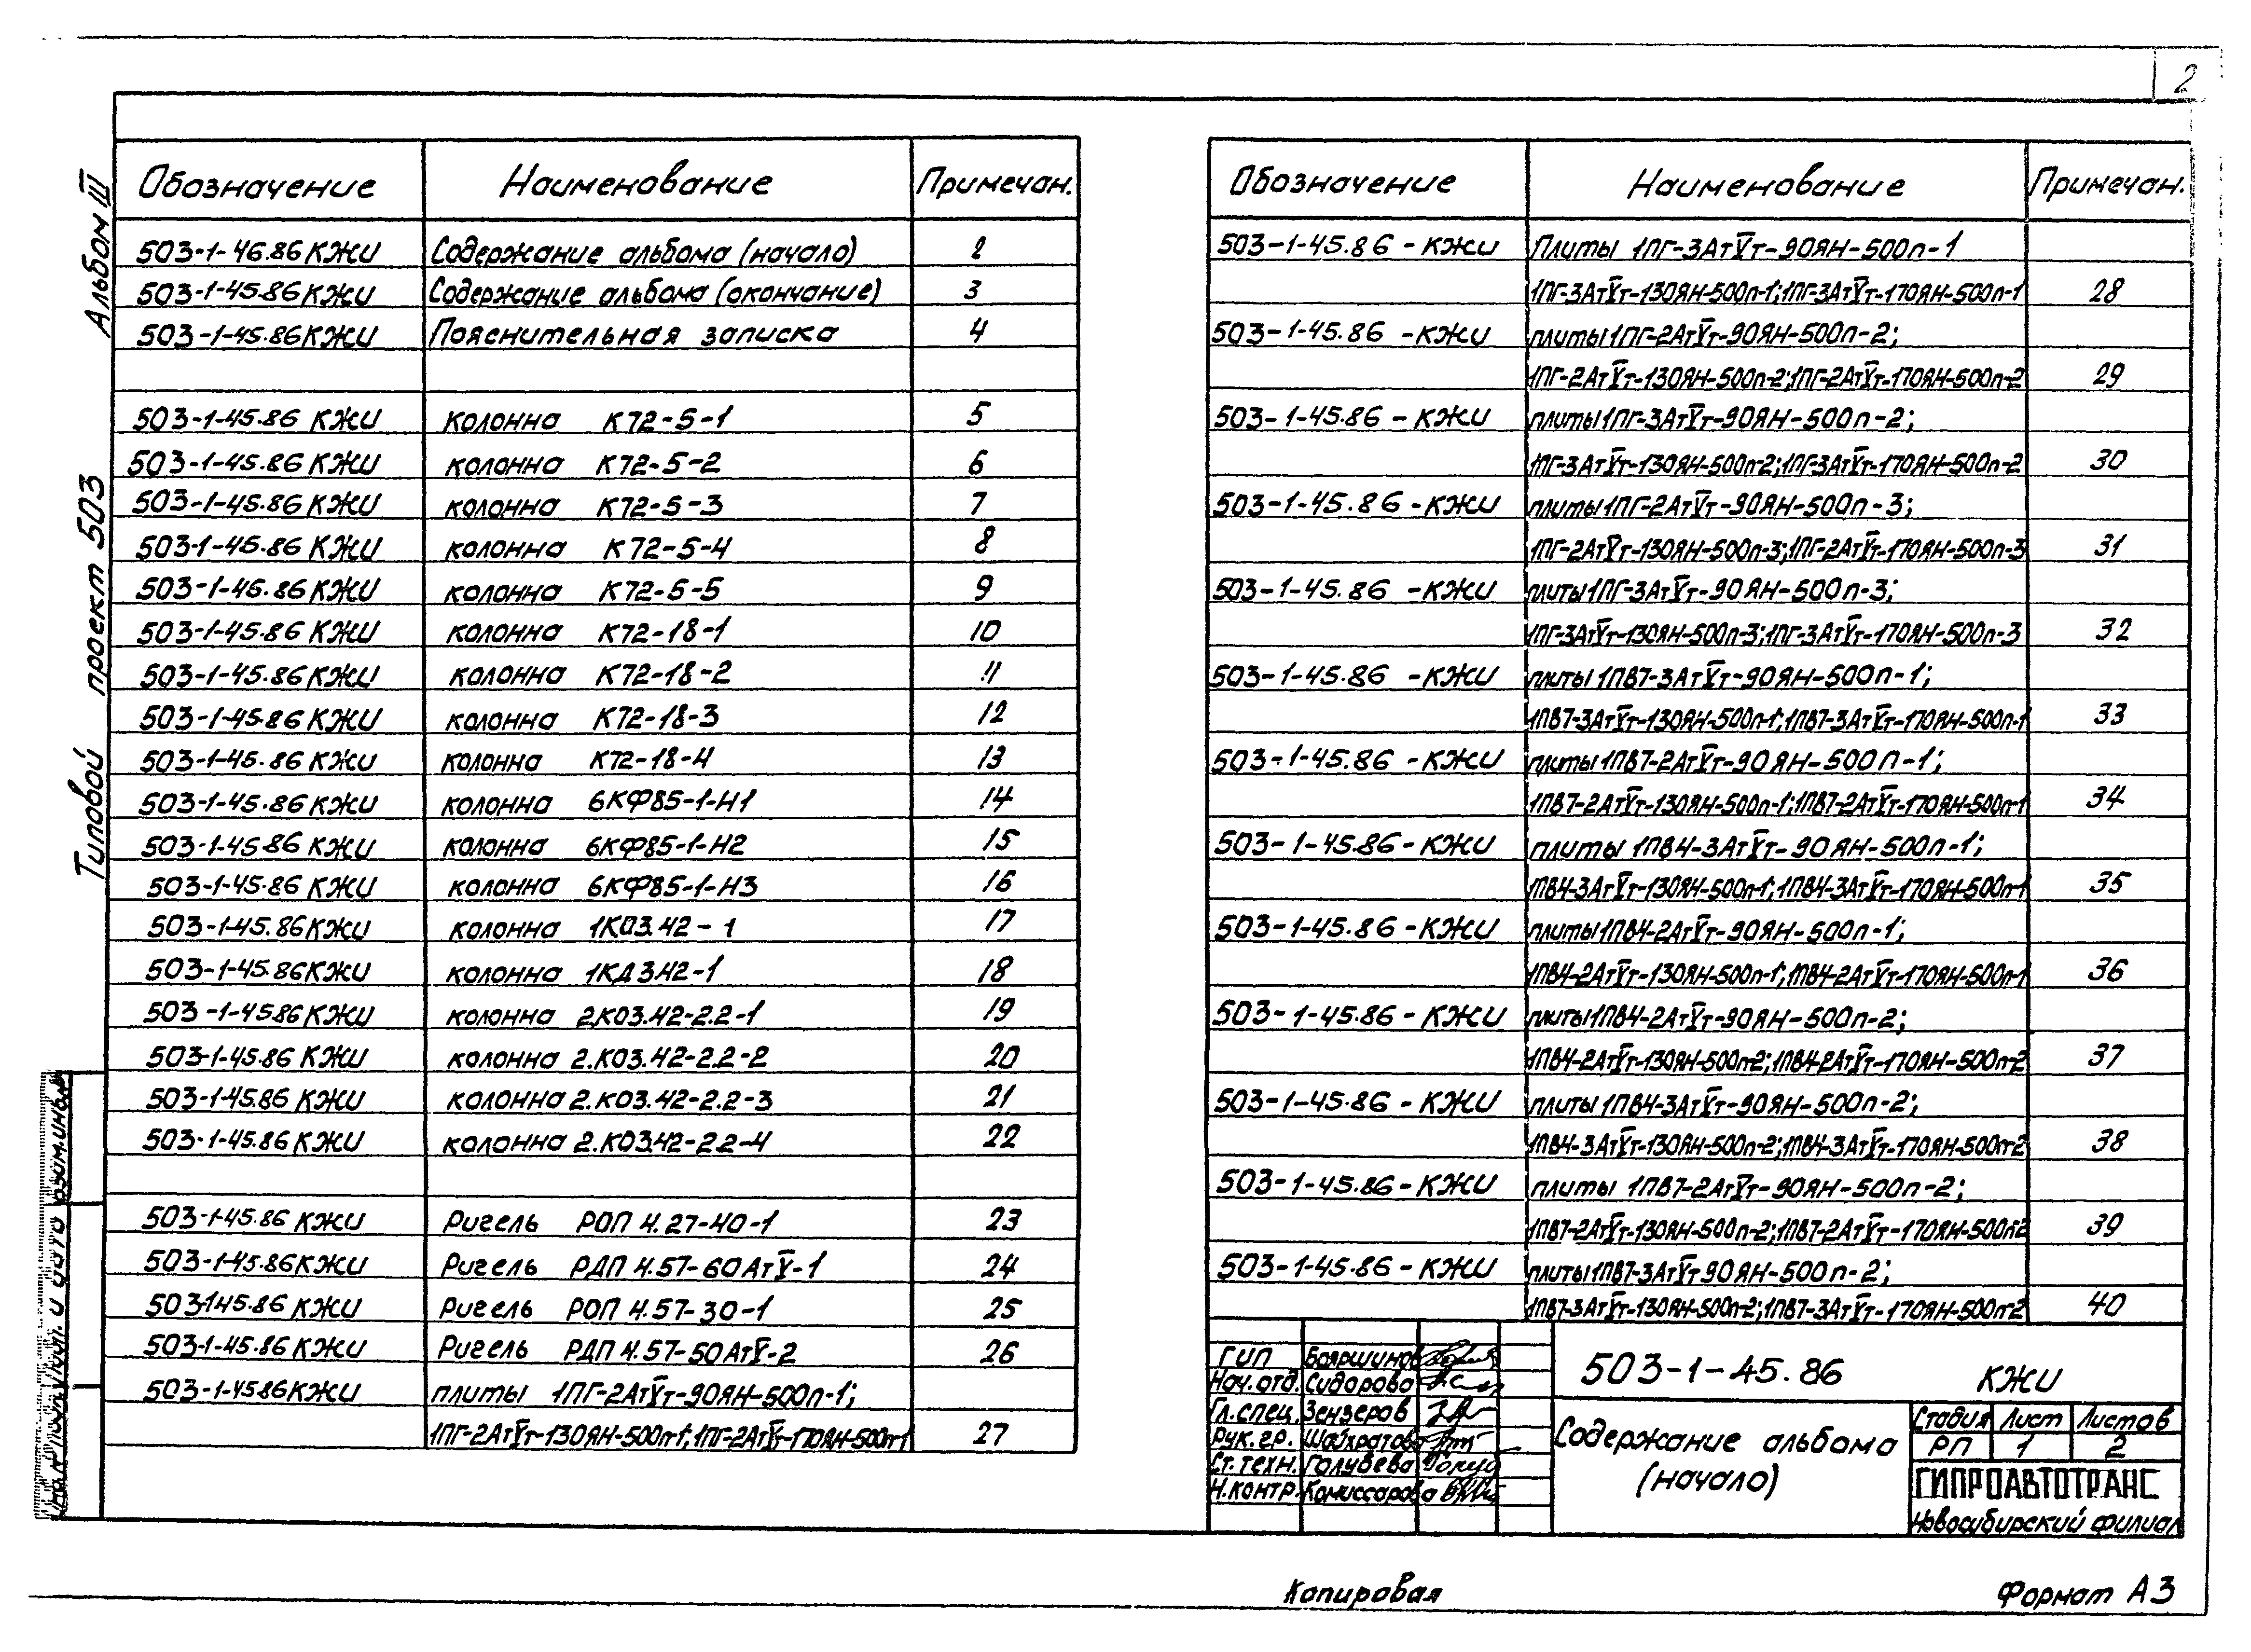 2
Альбом III
Типовой проект 503
Обозначение Наименование Примечан.
503-1-46.86 КЖИ Содержание альбома (начало) 2
503-1-45.86 КЖИ Содержание альбома (окончание) 3
503-1-45.86 КЖИ Пояснительная записка 4
503-1-45.86 КЖИ колонна К72-5-1 5
503-1-45.86 КЖИ колонна К72-5-2 6
503-1-45.86 КЖИ колонна К72-5-3 7
503-1-45.86 КЖИ колонна К72-5-4 8
503-1-46.86 КЖИ колонна К72-5-5 9
503-1-45.86 КЖИ колонна К72-18-1 10
503-1-45.86 КЖИ колонна К72-18-2 11
503-1-45.86 КЖИ колонна К72-18-3 12
503-1-45.86 КЖИ колонна К72-18-4 13
503-1-45.86 КЖИ колонна 6КФ85-1-Н1 14
503-1-45.86 КЖИ колонна 6КФ85-1-Н2 15
503-1-45.86 КЖИ колонна 6КФ85-1-Н3 16
503-1-45.86 КЖИ колонна 1К03.42-1 17
503-1-45.86 КЖИ колонна 1КД3.42-1 18
503-1-45.86 КЖИ колонна 2.К03.42-2.2-1 19
503-1-45.86 КЖИ колонна 2.К03.42-2.2-2 20
503-1-45.86 КЖИ колонна 2.К03.42-2.2-3 21
503-1-45.86 КЖИ колонна 2.К03.42-2.2-4 22
503-1-45.86 КЖИ Ригель РОП 4.27-40-1 23
503-1-45.86 КЖИ Ригель РДП 4.57-60АтV-1 24
503-1-45.86 КЖИ Ригель РОП 4.57-30-1 25
503-1-45.86 КЖИ Ригель РДП 4.57-50АтV-2 26
503-1-45.86 КЖИ плиты 1ПГ-2АтVт-90ЯН-500п-1;
1ПГ-2АтVт-130ЯН-500п-1; 1ПГ-2АтVт-170ЯН-500п-1 27
Обозначение Наименование Примечан.
503-1-45.86-КЖИ Плиты 1ПГ-3АтVт-90ЯН-500п-1
1ПГ-3АтVт-130ЯН-500п-1; 1ПГ-3АтVт-170ЯН-500п-1 28
503-1-45.86-КЖИ плиты 1ПГ-2АтVт-90ЯН-500п-2;
1ПГ-2АтVт-130ЯН-500п-2; 1ПГ-2АтVт-170ЯН-500п-2 29
503-1-45.86-КЖИ плиты 1ПГ-3АтVт-90ЯН-500п-2;
1ПГ-3АтVт-130ЯН-500п-2; 1ПГ-3АтVт-170ЯН-500п-2 30
503-1-45.86-КЖИ плиты 1ПГ-2АтVт-90ЯН-500п-3;
1ПГ-2АтVт-130ЯН-500п-3; 1ПГ-2АтVт-170ЯН-500п-3 31
503-1-45.86-КЖИ плиты 1ПГ-3АтVт-90ЯН-500п-3;
1ПГ-3АтVт-130ЯН-500п-3; 1ПГ-3АтVт-170ЯН-500п-3 32
503-1-45.86-КЖИ плиты 1ПВ7-3АтVт-90ЯН-500п-1;
1ПВ7-3АтVт-130ЯН-500п-1; 1ПВ7-3АтVт-170ЯН-500п-1 33
503-1-45.86-КЖИ плиты 1ПВ7-2АтVт-90ЯН-500п-1;
1ПВ7-2АтVт-130ЯН-500п-1; 1ПВ7-2АтVт-170ЯН-500п-1 34
503-1-45.86-КЖИ плиты 1ПВ4-3АтVт-90ЯН-500п-1;
1ПВ4-3АтVт-130ЯН-500п-1; 1ПВ4-3АтVт-170ЯН-500п-1 35
503-1-45.86-КЖИ плиты 1ПВ4-2АтVт-90ЯН-500п-1;
1ПВ4-2АтVт-130ЯН-500п-1; 1ПВ4-2АтVт-170ЯН-500п-1 36
503-1-45.86-КЖИ плиты 1ПВ4-2АтVт-90ЯН-500п-2;
1ПВ4-2АтVт-130ЯН-500п-2; 1ПВ4-2АтVт-170ЯН-500п-2 37
503-1-45.86-КЖИ плиты 1ПВ4-3АтVт-90ЯН-500п-2;
1ПВ4-3АтVт-130ЯН-500п-2; 1ПВ4-3АтVт-170ЯН-500п-2 38
503-1-45.86-КЖИ плиты 1ПВ7-2АтVт-90ЯН-500п-2;
1ПВ7-2АтVт-130ЯН-500п-2; 1ПВ7-2АтVт-170ЯН-500п-2 39
503-1-45.86-КЖИ плиты 1ПВ7-3АтVт 90ЯН-500п-2;
1ПВ7-3АтVт-130ЯН-500п-2; 1ПВ7-3АтVт-170ЯН-500п-2 40
ГИП Бояршинов
Нач.отд. Сидорова
Гл.спец. Зензеров
Рук.гр. Шайхратова
Ст.техн. Голубева
Н.контр. Комиссарова
503-1-45.86 КЖИ
Содержание альбома
(начало)
Стадия Лист Листов
РП 1 2
ГИПРОАВТОТРАНС
Новосибирский филиал
Копировая
Формат А3